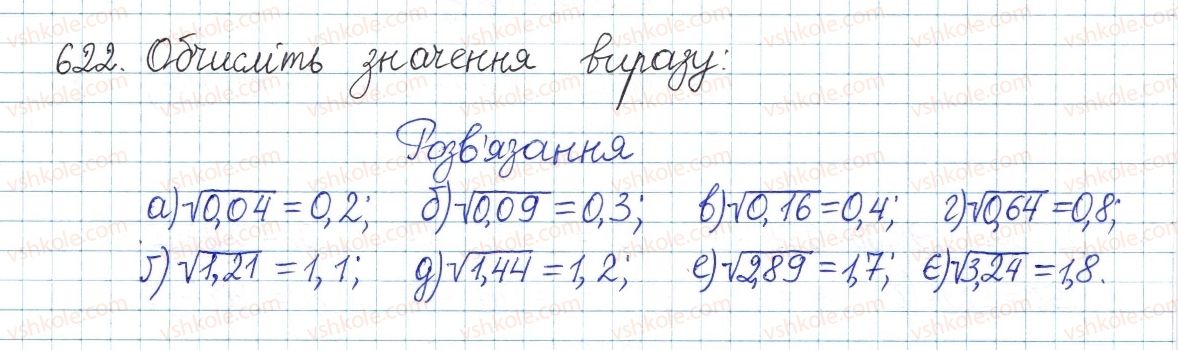 622. Обчисліть значення виразу:
Розв'язання
а) √0,04 = 0,2; б) √0,09 = 0,3; в) √0,16 = 0,4; г) √0,64 = 0,8;
ґ) √1,21 = 1,1; д) √1,44 = 1,2; е) √2,89 = 1,7; є) √3,24 = 1,8.
vshkole.com